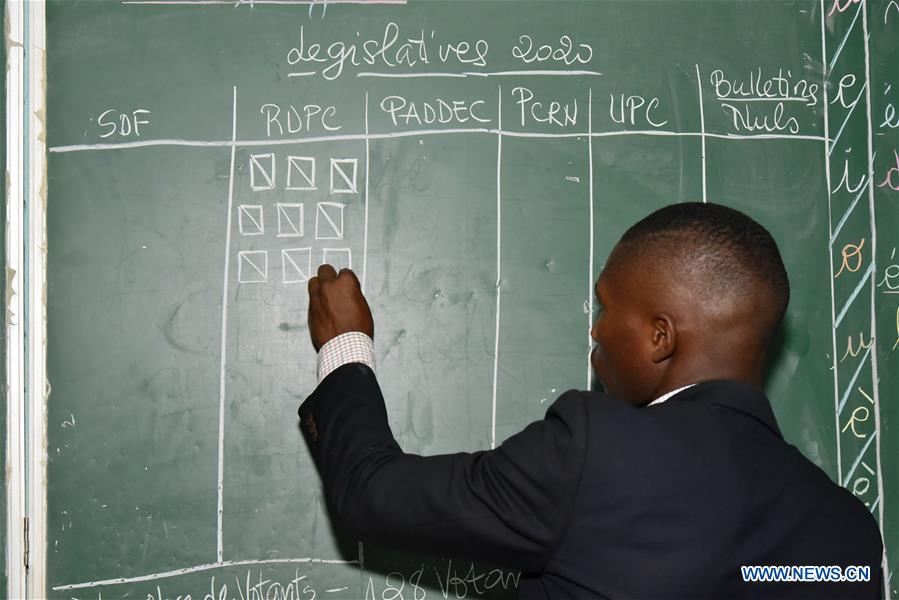 Legislatives 2020
SDF RDPC PADDEC PCRN UPC Bulletins Nuls
e
i
o
u
é
è
de Votants - 128 Votan
WWW.NEWS.CN